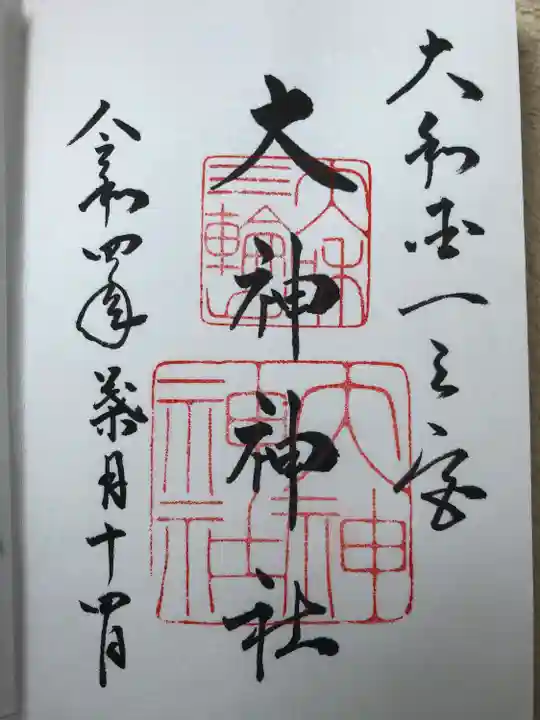 大和国一之宮
大神神社
令和四年葉月十四日
大和
三輪山
大神
神社